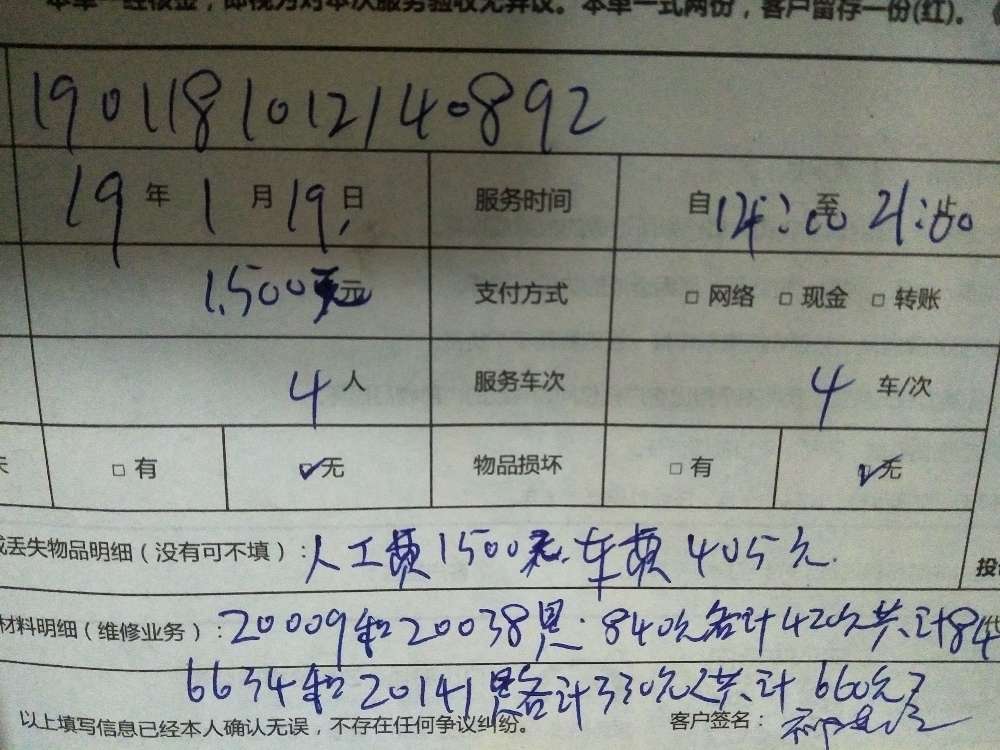 本单一经核金，即视为对本次服务验收无异议。本单一式两份，客户留存一份(红)。
1901181012140892
19年1月19日 服务时间 自14:00至21:00止
1,500元 支付方式 □网络 □现金 □转账
4人 服务车次 4车/次
□有 ☑无 物品损坏 □有 ☑无
或丢失物品明细（没有可不填）：人工费1500元.车费405元.
材料明细（维修业务）：20009和20038是.840元各计420元共计84
6634和20141是各计330元共计660元
以上填写信息已经本人确认无误，不存在任何争议纠纷。 客户签名：